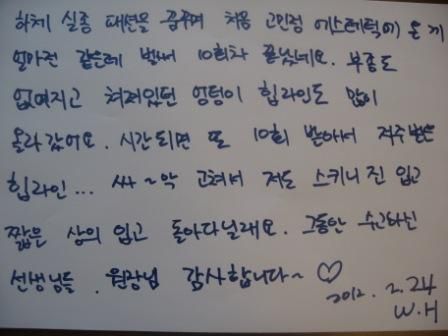 하체 실종 패션을 꿈꾸며 처음 고민정 에스테틱에 온 게
얼마전 같은데 벌써 10회차 끝났네요. 부종도
없어지고 쳐져있던 엉덩이 힙라인도 많이
올라갔어요. 시간되면 또 10회 받아서 저주받은
힙라인... 싸~악 고쳐서 저도 스키니진 입고
짧은 상의 입고 돌아다닐래요. 그동안 수고하신
선생님들. 원장님 감사합니다~ ♡
2012. 2. 24
W.H